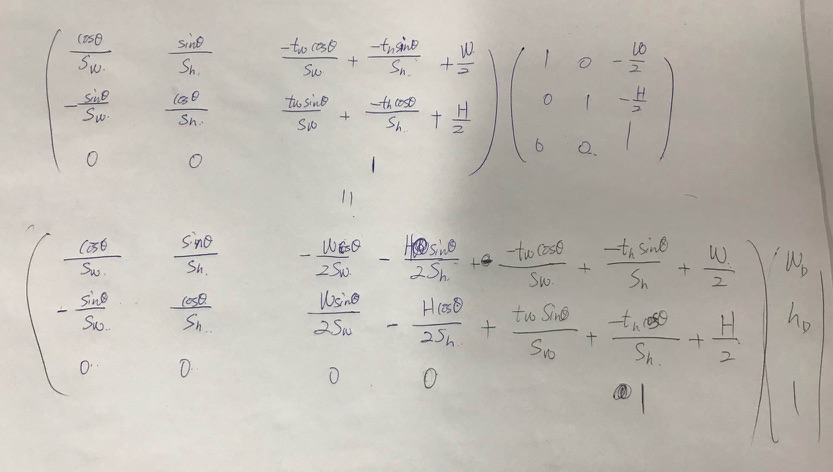 cosθ/S_w. sinθ/S_h. -t_w cosθ/S_w + -t_h sinθ/S_h. + W/2 1 0 -W/2
-sinθ/S_w. cosθ/S_h. t_w sinθ/S_w + -t_h cosθ/S_h. + H/2 0 1 -H/2
0 0 1 0 0. 1
=
cosθ/S_w. sinθ/S_h. -W cosθ/2S_w. - H sinθ/2S_h. + -t_w cosθ/S_w. + -t_h sinθ/S_h + W./2 W_D
-sinθ/S_w. cosθ/S_h. W sinθ/2S_w - H cosθ/2S_h. + t_w sinθ/S_w + -t_h cosθ/S_h. + H/2 h_D
0. 0. 0 0 1 1